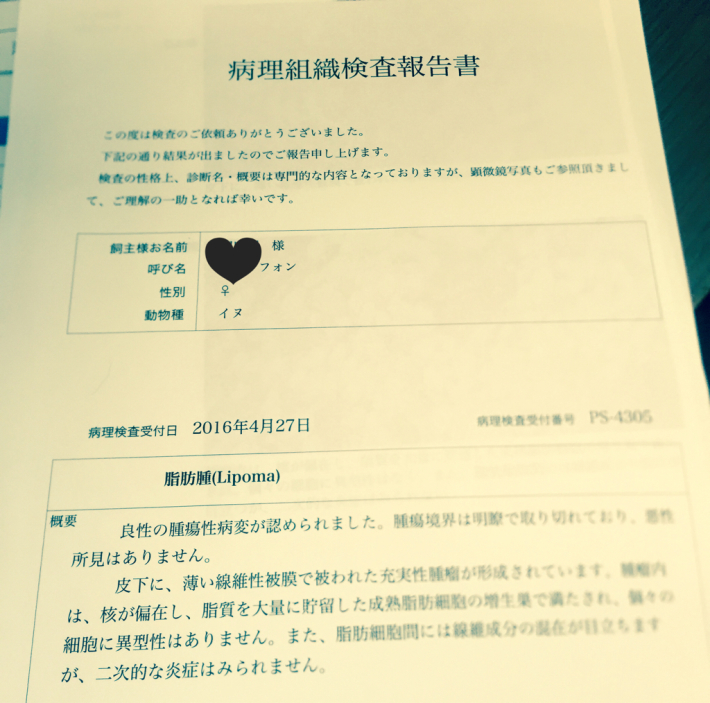 病理組織検査報告書
この度は検査のご依頼ありがとうございました。
下記の通り結果が出ましたのでご報告申し上げます。
検査の性格上、診断名・概要は専門的な内容となっておりますが、顕微鏡写真もご参照頂きまし
て、ご理解の一助となれば幸いです。
飼主様お名前 様
呼び名 フォン
性別 ♀
動物種 イヌ
病理検査受付日 2016年4月27日 病理検査受付番号 PS-4305
脂肪腫(Lipoma)
概要 良性の腫瘍性病変が認められました。腫瘍境界は明瞭で取り切れており、悪性
所見はありません。
皮下に、薄い線維性被膜で被われた充実性腫瘤が形成されています。腫瘤内
は、核が偏在し、脂質を大量に貯留した成熟脂肪細胞の増生巣で満たされ、個々の
細胞に異型性はありません。また、脂肪細胞間には線維成分の混在が目立ちます
が、二次的な炎症はみられません。